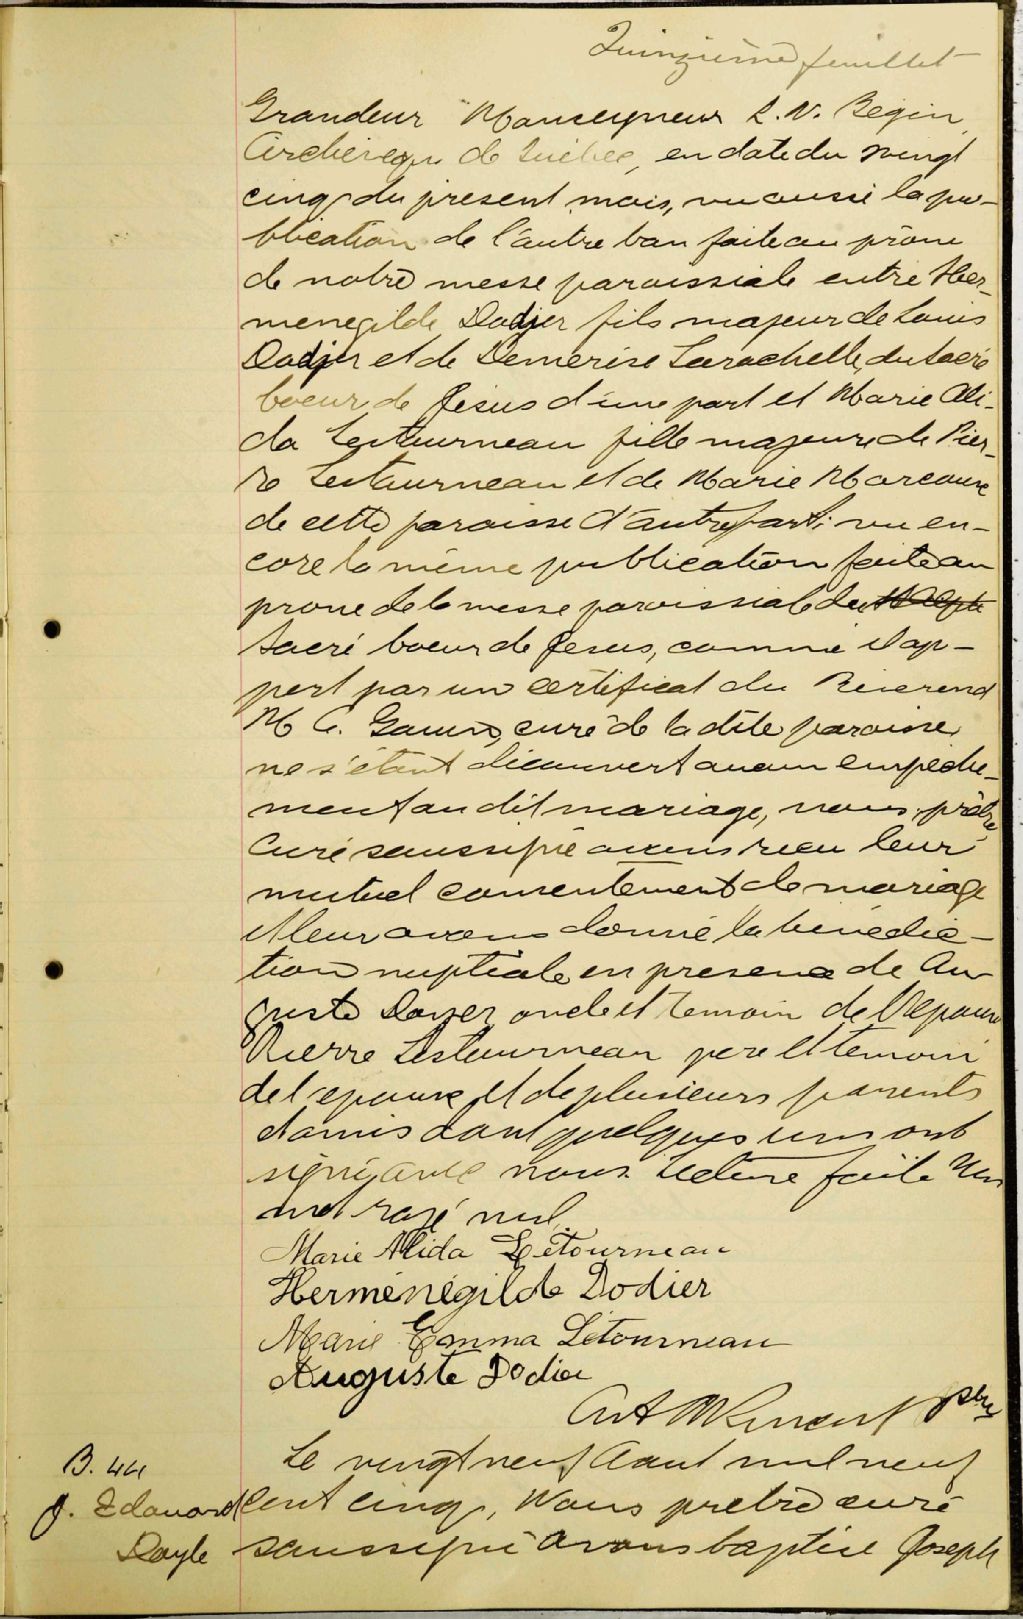 Quinzième feuillet
Grandeur Monseigneur L. N. Begin
Archeveque de Québec, en date du vingt
cinq du present mois, vu aussi la pu-
blication de l'autre ban faite au prône
de notre messe paroissiale entre Her-
menegilde Dodier fils majeur de Louis
Dodier et de Demerise Larochelle, du Sacré
Coeur de Jésus d'une part et Marie Ali-
da Lestourneau fille majeure de Pier-
re Lestourneau et de Marie Marcoux
de cette paroisse d'autre part; vu en-
core la même publication faite au
prone de la messe paroissiale du
Sacré Coeur de Jesus, comme il ap-
pert par un certificat du Reverend
M curé de la dite paroisse,
ne s'étant découvert aucun empeche-
ment au dit mariage, nous, prêtre,
Curé soussigné avons recu leur
mutuel consentement de mariage
et leur avons donné la bénédic-
tion nuptiale en presence de Au-
guste oncle et temoin de l'Epoux
Pierre Lestourneau pere et temoin
de l'epouse et de plusieurs parents
et amis dont quelques uns ont
signé avec nous. Lecture faite Un
mot rayé nul.
Marie Alida Létourneau
Herménégilde Dodier
Marie Emma Létourneau
Auguste Dodier
Ptre
B. 44
J. Edouard
Doyle
Le vingt neuf Aout mil neuf
cent cinq, Nous pretre curé
soussigné avons baptisé Joseph